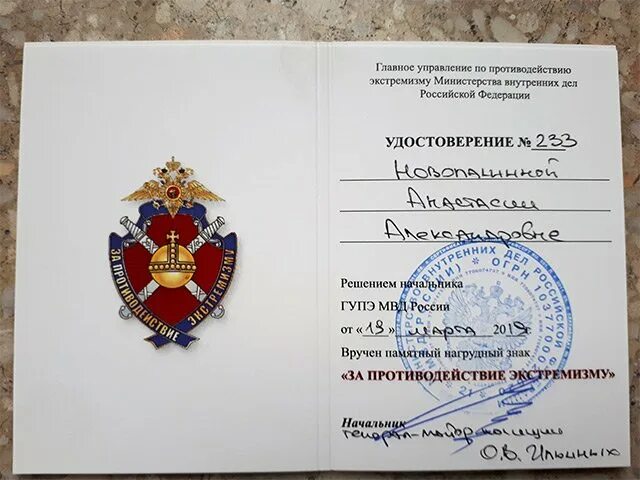 ЗА ПРОТИВОДЕЙСТВИЕ ЭКСТРЕМИЗМУ
Главное управление по противодействию
экстремизму Министерства внутренних дел
Российской Федерации
УДОСТОВЕРЕНИЕ № 233
Новопашинной
Анастасии
Александровне
Решением начальника
ГУПЭ МВД России
от «19» марта 2019г.
Вручен памятный нагрудный знак
«ЗА ПРОТИВОДЕЙСТВИЕ ЭКСТРЕМИЗМУ»
Начальник
генерал-майор полиции
О.В. Ильиных
ВНУТРЕННИХ ДЕЛ РОССИЙСКОЙ
ОГРН